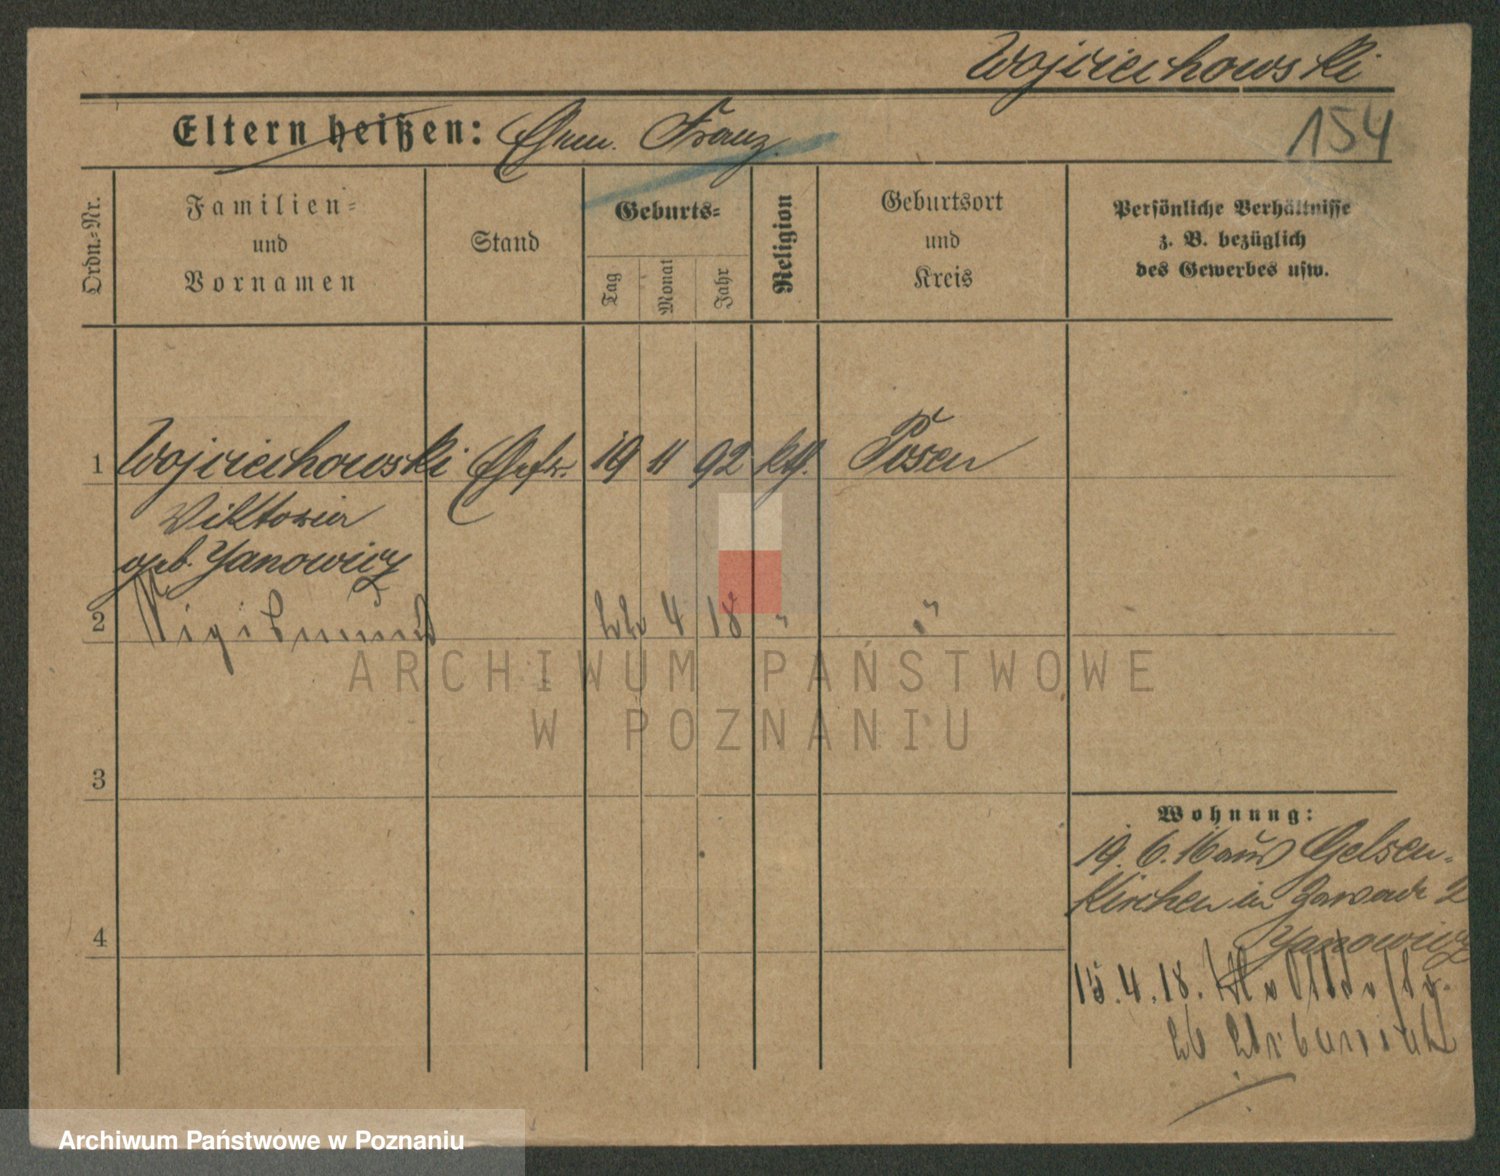 Wojciechowski
Eltern heißen: Ehem. Franz.
154
Ordn.-Nr.
Familien-
und
Vornamen
Stand
Geburts-
Tag
Monat
Jahr
Religion
Geburtsort
und
Kreis
Persönliche Verhältnisse
z. B. bezüglich
des Gewerbes usw.
1 Wojciechowski Ehefr. 19 11 92 kth. Posen
Viktoria
geb. Yanowicz
2 Sigismund 22 4 18 " "
3
4
Wohnung:
19. 6. 16 aus Gelsen-
kirchen in Zawade 2
Yanowicz
15. 4. 18.
26 Urbaniak
ARCHIWUM PAŃSTWOWE
W POZNANIU
Archiwum Państwowe w Poznaniu